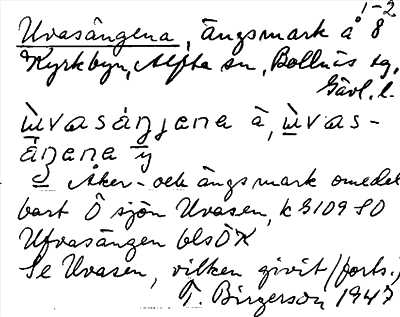 1-2
Uvasängena, ängsmark å 8
Kyrkbyn, Alfta sn, Bollnäs tg,
Gävl. l.
ùvasáŋjena à, ùvas-
áŋena y
Åker- och ängsmark omedel
bart Ö sjön Uvasen, k G109 SO
Ufvasängen bl s ÖX
Se Uvasen, vilken givit (forts.)
T. Birgerson 1947